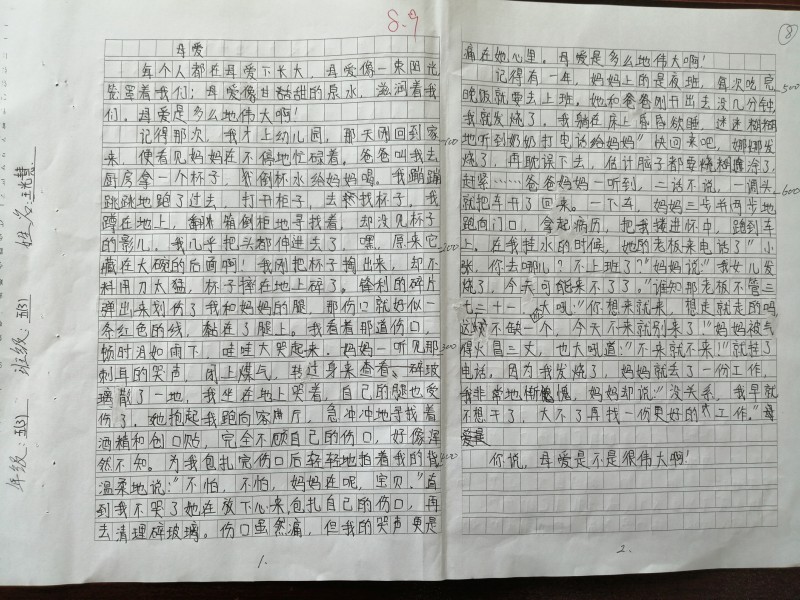 8.9
母爱
每个人都在母爱下长大，母爱像一束阳光
笼罩着我们；母爱像甘甜的泉水，滋润着我
们。母爱是多么地伟大啊！
记得那次，我才上幼儿园，那天刚回到家
来，便看见妈妈在不停地忙碌着。爸爸叫我去
厨房拿一个杯子，倒杯水给妈妈喝。我蹦蹦
跳跳地跑了过去，打开柜子，去察找杯子。我
蹲在地上，翻箱倒柜地寻找着，却没见杯子
的影儿。我几乎把头都伸进去了，嘿，原来它
藏在大碗的后面啊！我刚把杯子掏出来，却不
料用力太猛，杯子摔在地上碎了。锋利的碎片
弹出来划伤了我和妈妈的腿，那伤口就好似一
条红色的线，黏在了腿上。我看着那道伤口，
顿时泪如雨下，哇哇大哭起来。妈妈一听见那
刺耳的哭声，闭上煤气，转过身来查看。碎玻
璃散了一地，我坐在地上哭着，自己的腿也受
伤了。她抱起我跑向客厅，急冲冲地寻找着
酒精和创口贴，完全不顾自己的伤口，好像浑
然不知。为我包扎完伤口后轻轻地拍着我的背
温柔地说：“不怕，不怕，妈妈在呢，宝贝。”直
到我不哭了她在放下心来包扎自己的伤口，再
去清理碎玻璃。伤口虽然痛，但我的哭声更是
1.
年级：五(3) 班级：五(3) 姓名：
100
200
300
400
8
痛在她心里。母爱是多么地伟大啊！
记得有一年，妈妈上的是夜班，每次吃完
晚饭就要去上班。她和爸爸刚开出去没几分钟
我就发烧了。我躺在床上昏昏欲睡，迷迷糊糊
地听到奶奶打电话给妈妈“快回来吧，娜娜发
烧了，再耽误下去，估计脑子都要烧糊涂了，
赶紧……爸爸妈妈一听到，二话不说，一调头
就把车开了回来。一下车，妈妈三步并两步地
跑向门口，拿起病历，把我搂进怀中，跑到车
上。在我挂水的时候，她的老板来电话了“小
张，你去哪儿？不上班了？”妈妈说：“我女儿发
烧了，今天可能来不了了。”谁知那老板不管三
七二十一，大吼：“你想来就来，想走就走的吗
这不缺你一个，今天不来就别来了！”妈妈被气
得火冒三丈，也大吼道：“不来就不来！”就挂了
电话，因为我发烧了，妈妈就丢了一份工作，
我非常地惭愧，妈妈却说：“没关系，我早就
不想干了，大不了再找一份更好的工作。”
你说，母爱是不是很伟大啊！
2.
500
600